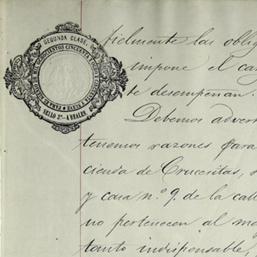 SEGUNDA CLASE
SELLO 2º - 4 REALES
fielmente las oblig
impone el car
te desempeñan.
Debemos adver
tenemos razones para
cienda de Crucecitas, s
y casa nº 9. de la call
no pertenecen al m
tanto indispensable,